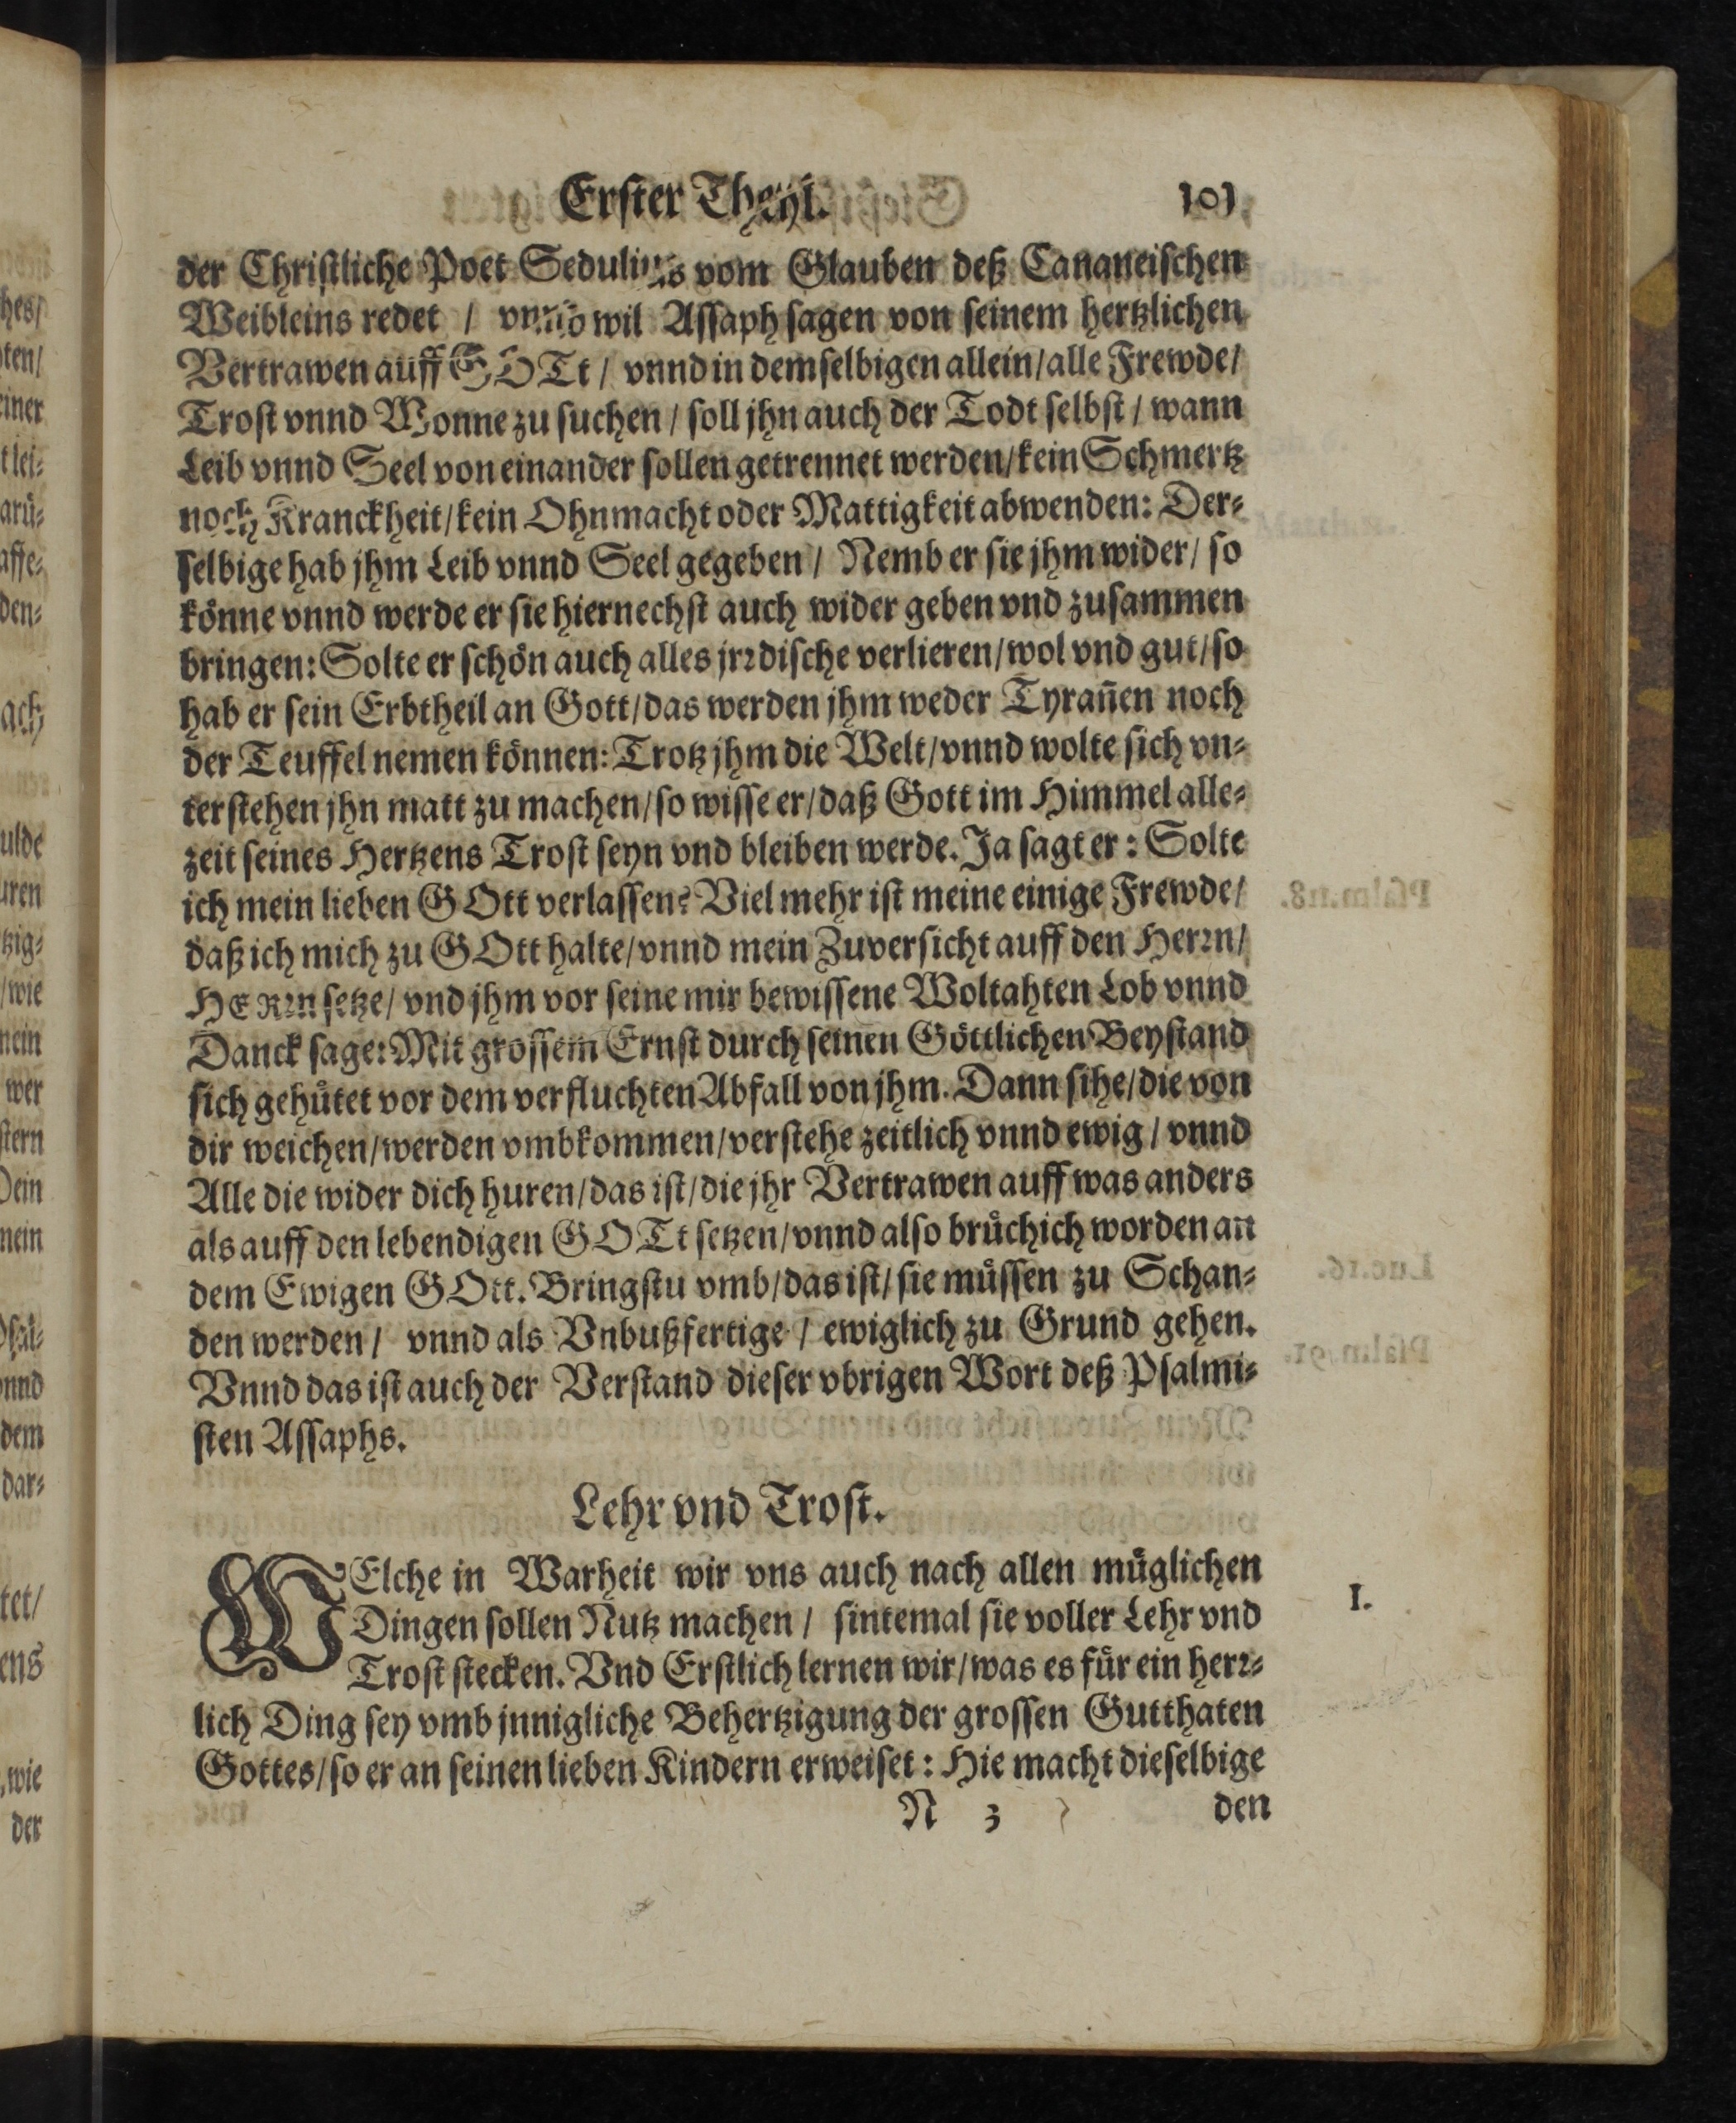 Erster Theyl. 101
der Christliche Poet Sedulius vom Glauben deß Cananeischen
Weibleins redet / wil Assaph sagen von seinem hertzlichen
Vertrawen auff GOTt / vnnd in demselbigen allein / alle Frewde /
Trost vnnd Wonne zu suchen / soll jhn auch der Todt selbst / wann
Leib vnnd Seel von einander sollen getrennet werden / kein Schmertz
noch Kranckheit / kein Ohnmacht oder Mattigkeit abwenden: Der⸗
selbige hab jhm Leib vnnd Seel gegeben / Nemb er sie jhm wider / so
könne vnnd werde er sie hiernechst auch wider geben vnd zusammen
bringen: Solte er schön auch alles jrꝛdische verlieren / wol vnd gut / so
hab er sein Erbtheil an Gott / das werden jhm weder Tyrañen noch
der Teuffel nemen können: Trotz jhm die Welt / vnnd wolte sich vn⸗
terstehen jhn matt zu machen / so wisse er / daß Gott im Himmel alle⸗
zeit seines Hertzens Trost seyn vnd bleiben werde. Ja sagt er: Solte
ich mein lieben GOtt verlassen? Viel mehr ist meine einige Frewde /
daß ich mich zu GOtt halte / vnnd mein Zuversicht auff den Herꝛn /
HERꝛn setze / vnd jhm vor seine mir bewissene Woltahten Lob vnnd
Danck sage: Mit grossem Ernst durch seinen Göttlichen Beystand
sich gehütet vor dem verfluchten Abfall von jhm. Dann sihe / die von
dir weichen / werden vmbkommen / verstehe zeitlich vnnd ewig / vnnd
Alle die wider dich huren / das ist / die jhr Vertrawen auff was anders
als auff den lebendigen GOTt setzen / vnnd also brüchich worden an
dem Ewigen GOtt. Bringstu vmb / das ist / sie müssen zu Schan⸗
den werden / vnnd als Vnbußfertige / ewiglich zu Grund gehen.
Vnnd das ist auch der Verstand dieser vbrigen Wort deß Psalmi⸗
sten Assaphs.
Lehr vnd Trost.
WElche in Warheit wir vns auch nach allen müglichen
Dingen sollen Nutz machen / sintemal sie voller Lehr vnd
I.
Trost stecken. Vnd Erstlich lernen wir / was es für ein herꝛ⸗
lich Ding sey vmb jnnigliche Behertzigung der grossen Gutthaten
Gottes / so er an seinen lieben Kindern erweiset: Hie macht dieselbige
N 3 den